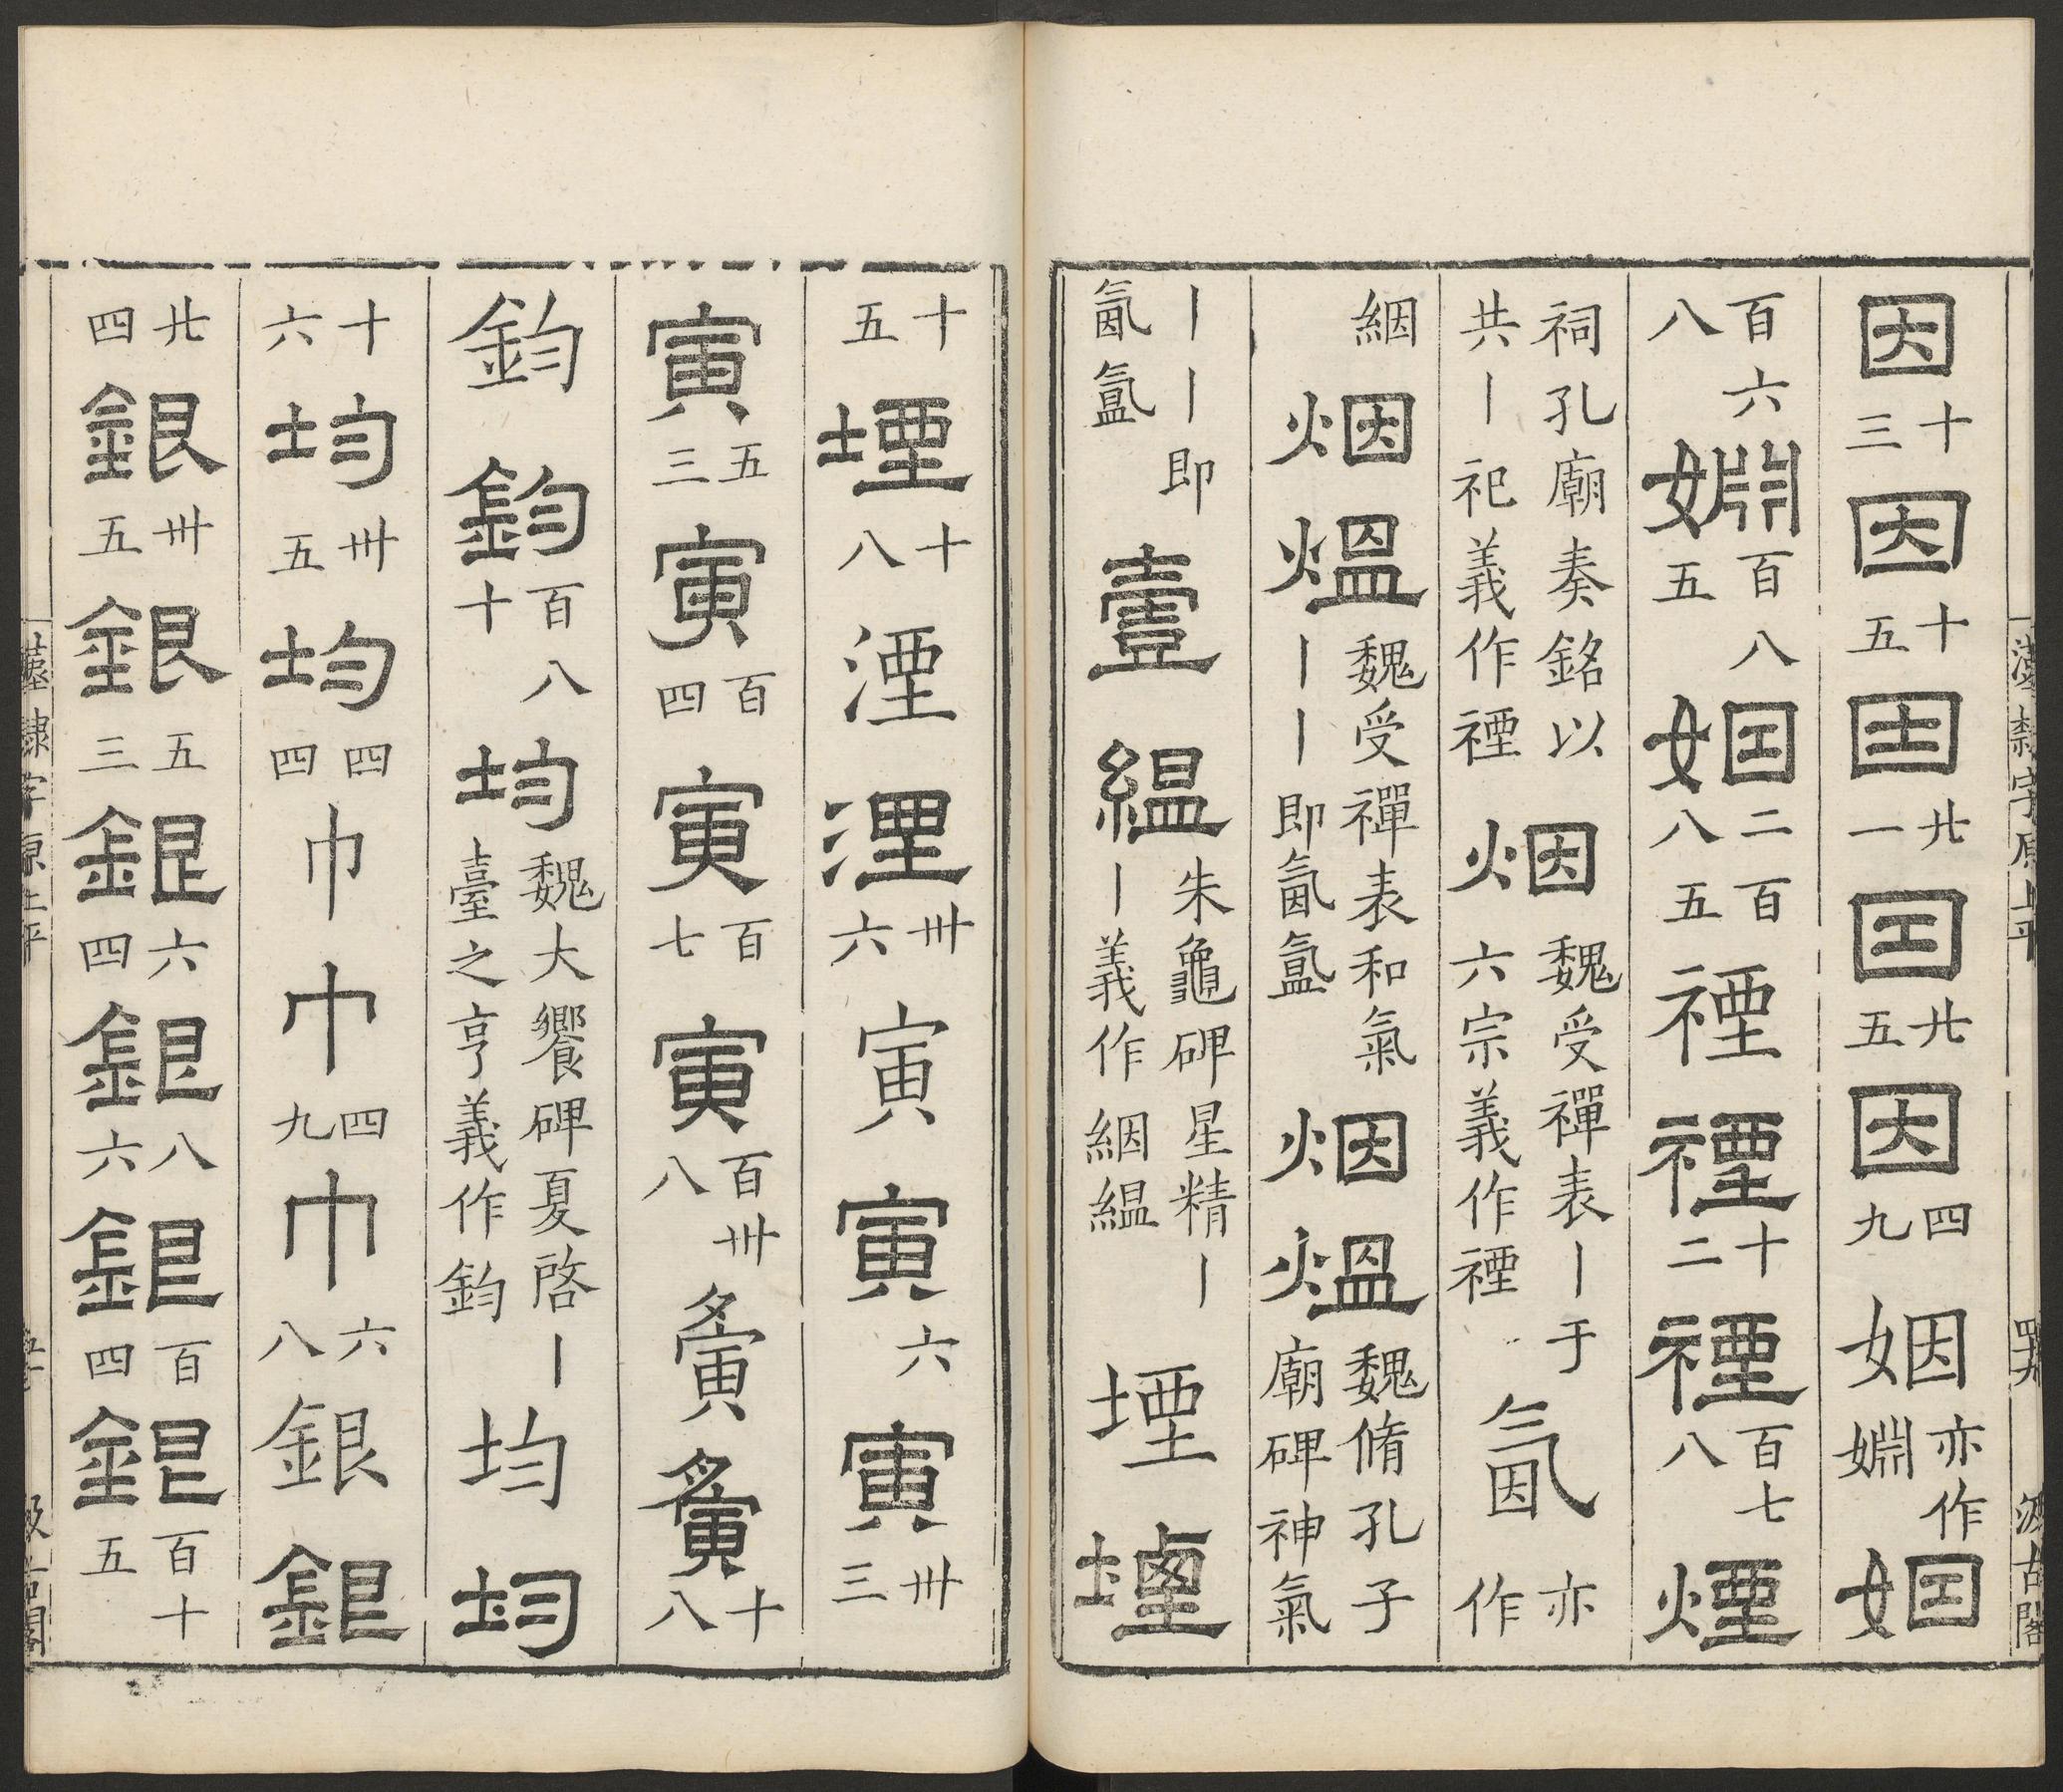 因十三因十五因廿一因廿五因四九姻亦作婣姻
百六八婣百八五姻二百八五禋禋十二禋百七八煙
祠孔廟奏銘以共丨祀義作禋烟魏受禪表丨于六宗義作禋氤亦作
絪烟熅魏受禪表和氣丨丨即氤氳烟熅魏脩孔子廟碑神氣
丨丨即氤氳壹縕朱龜碑星精丨丨義作絪縕堙堙
十五堙十八湮湮卅六寅寅六寅卅三
寅五三寅百四寅百七寅百卅八夤夤十八
鈞鈞百八十均魏大饗碑夏啓丨臺之亨義作鈞均均
十六均卅五均四四巾巾四九巾六八銀銀
廿四銀卅五銀五三銀六四銀八六銀百四銀百十五